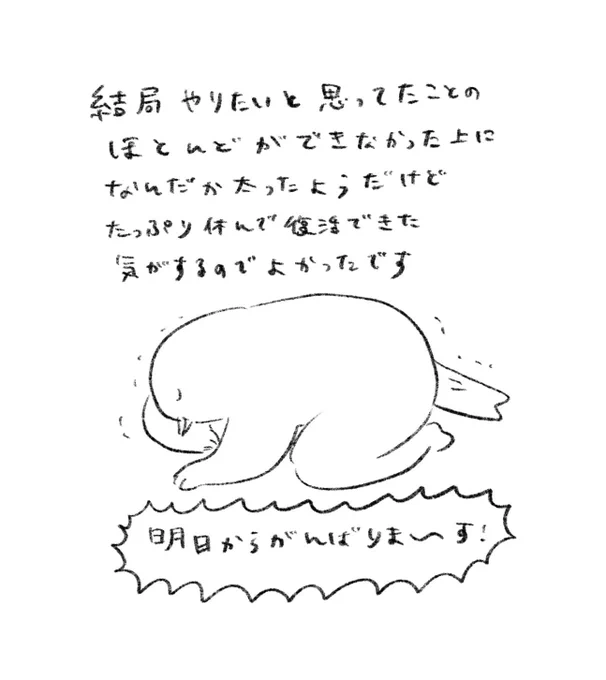 結局 やりたいと 思ってたことの
ほとんどができなかった上に
なんだか太ったようだけど
たっぷり休んで復活できた
気がするのでよかったです
明日からがんばりま〜す!